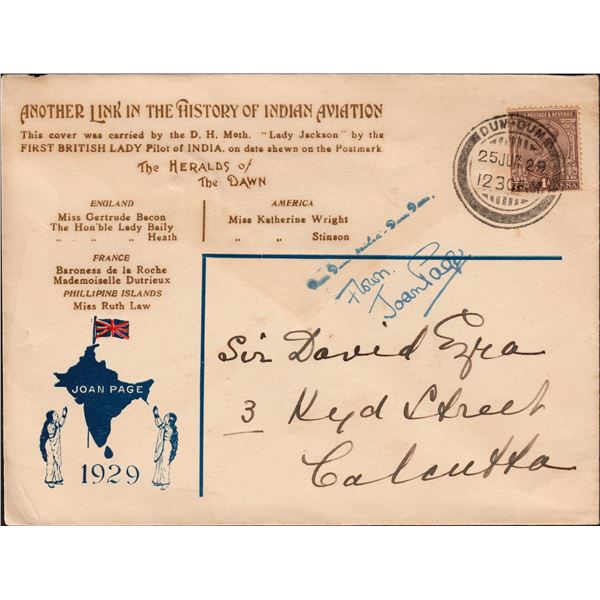 ANOTHER LINK IN THE HISTORY OF INDIAN AVIATION
This cover was carried by the D. H. Moth. "Lady Jackson" by the
FIRST BRITISH LADY Pilot of INDIA, on date shewn on the Postmark
The HERALDS of
The DAWN
ENGLAND
Miss Gertrude Bacon
The Hon'ble Lady Baily
" " " Heath
AMERICA
Miss Katherine Wright
" " Stinson
FRANCE
Baroness de la Roche
Mademoiselle Dutrieux
PHILLIPINE ISLANDS
Miss Ruth Law
JOAN PAGE
1929
POSTAGE & REVENUE
DUM-DUM
25 JU 29
12 30
Flown.
Joan Page
Sir David Ezra
3 Kyd Street
Calcutta